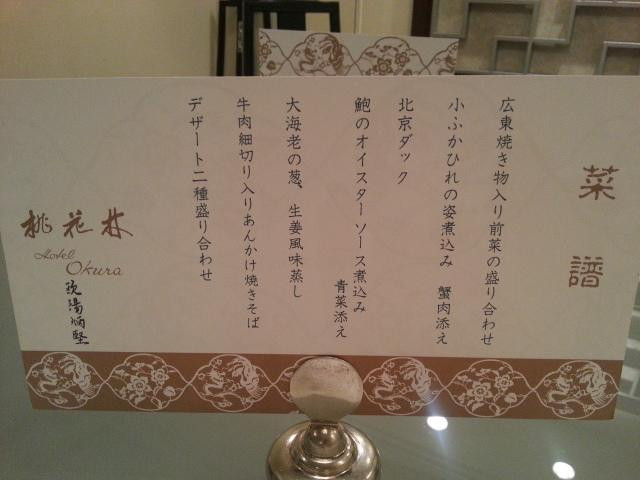 菜譜
広東焼き物入り前菜の盛り合わせ
小ふかひれの姿煮込み 蟹肉添え
北京ダック
鮑のオイスターソース煮込み
青菜添え
大海老の葱、生姜風味蒸し
牛肉細切り入りあんかけ焼きそば
デザート二種盛り合わせ
桃花林
Hotel Okura